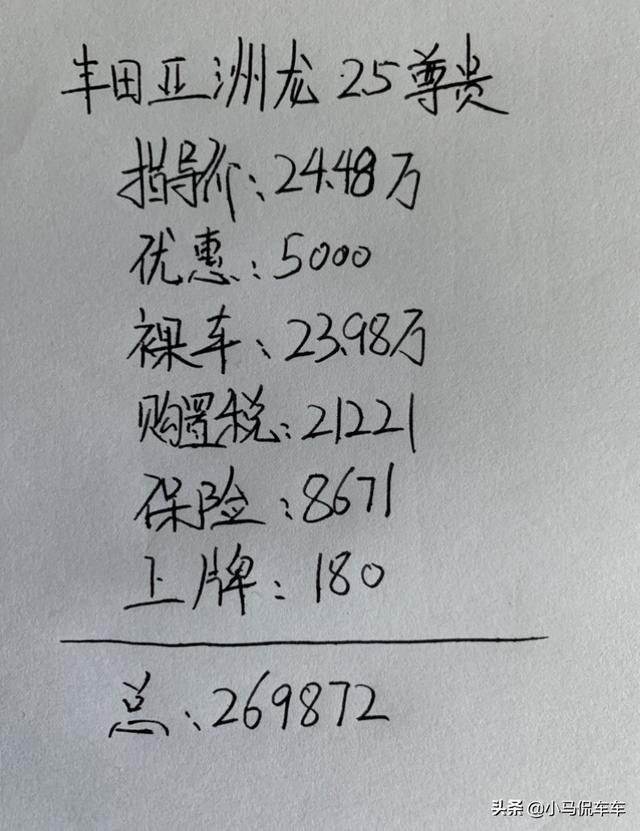 丰田亚洲龙 2.5尊贵
指导价:24.48万
优惠:5000
裸车:23.98万
购置税:21221
保险:8671
上牌:180
总:269872
头条 @小马侃车车